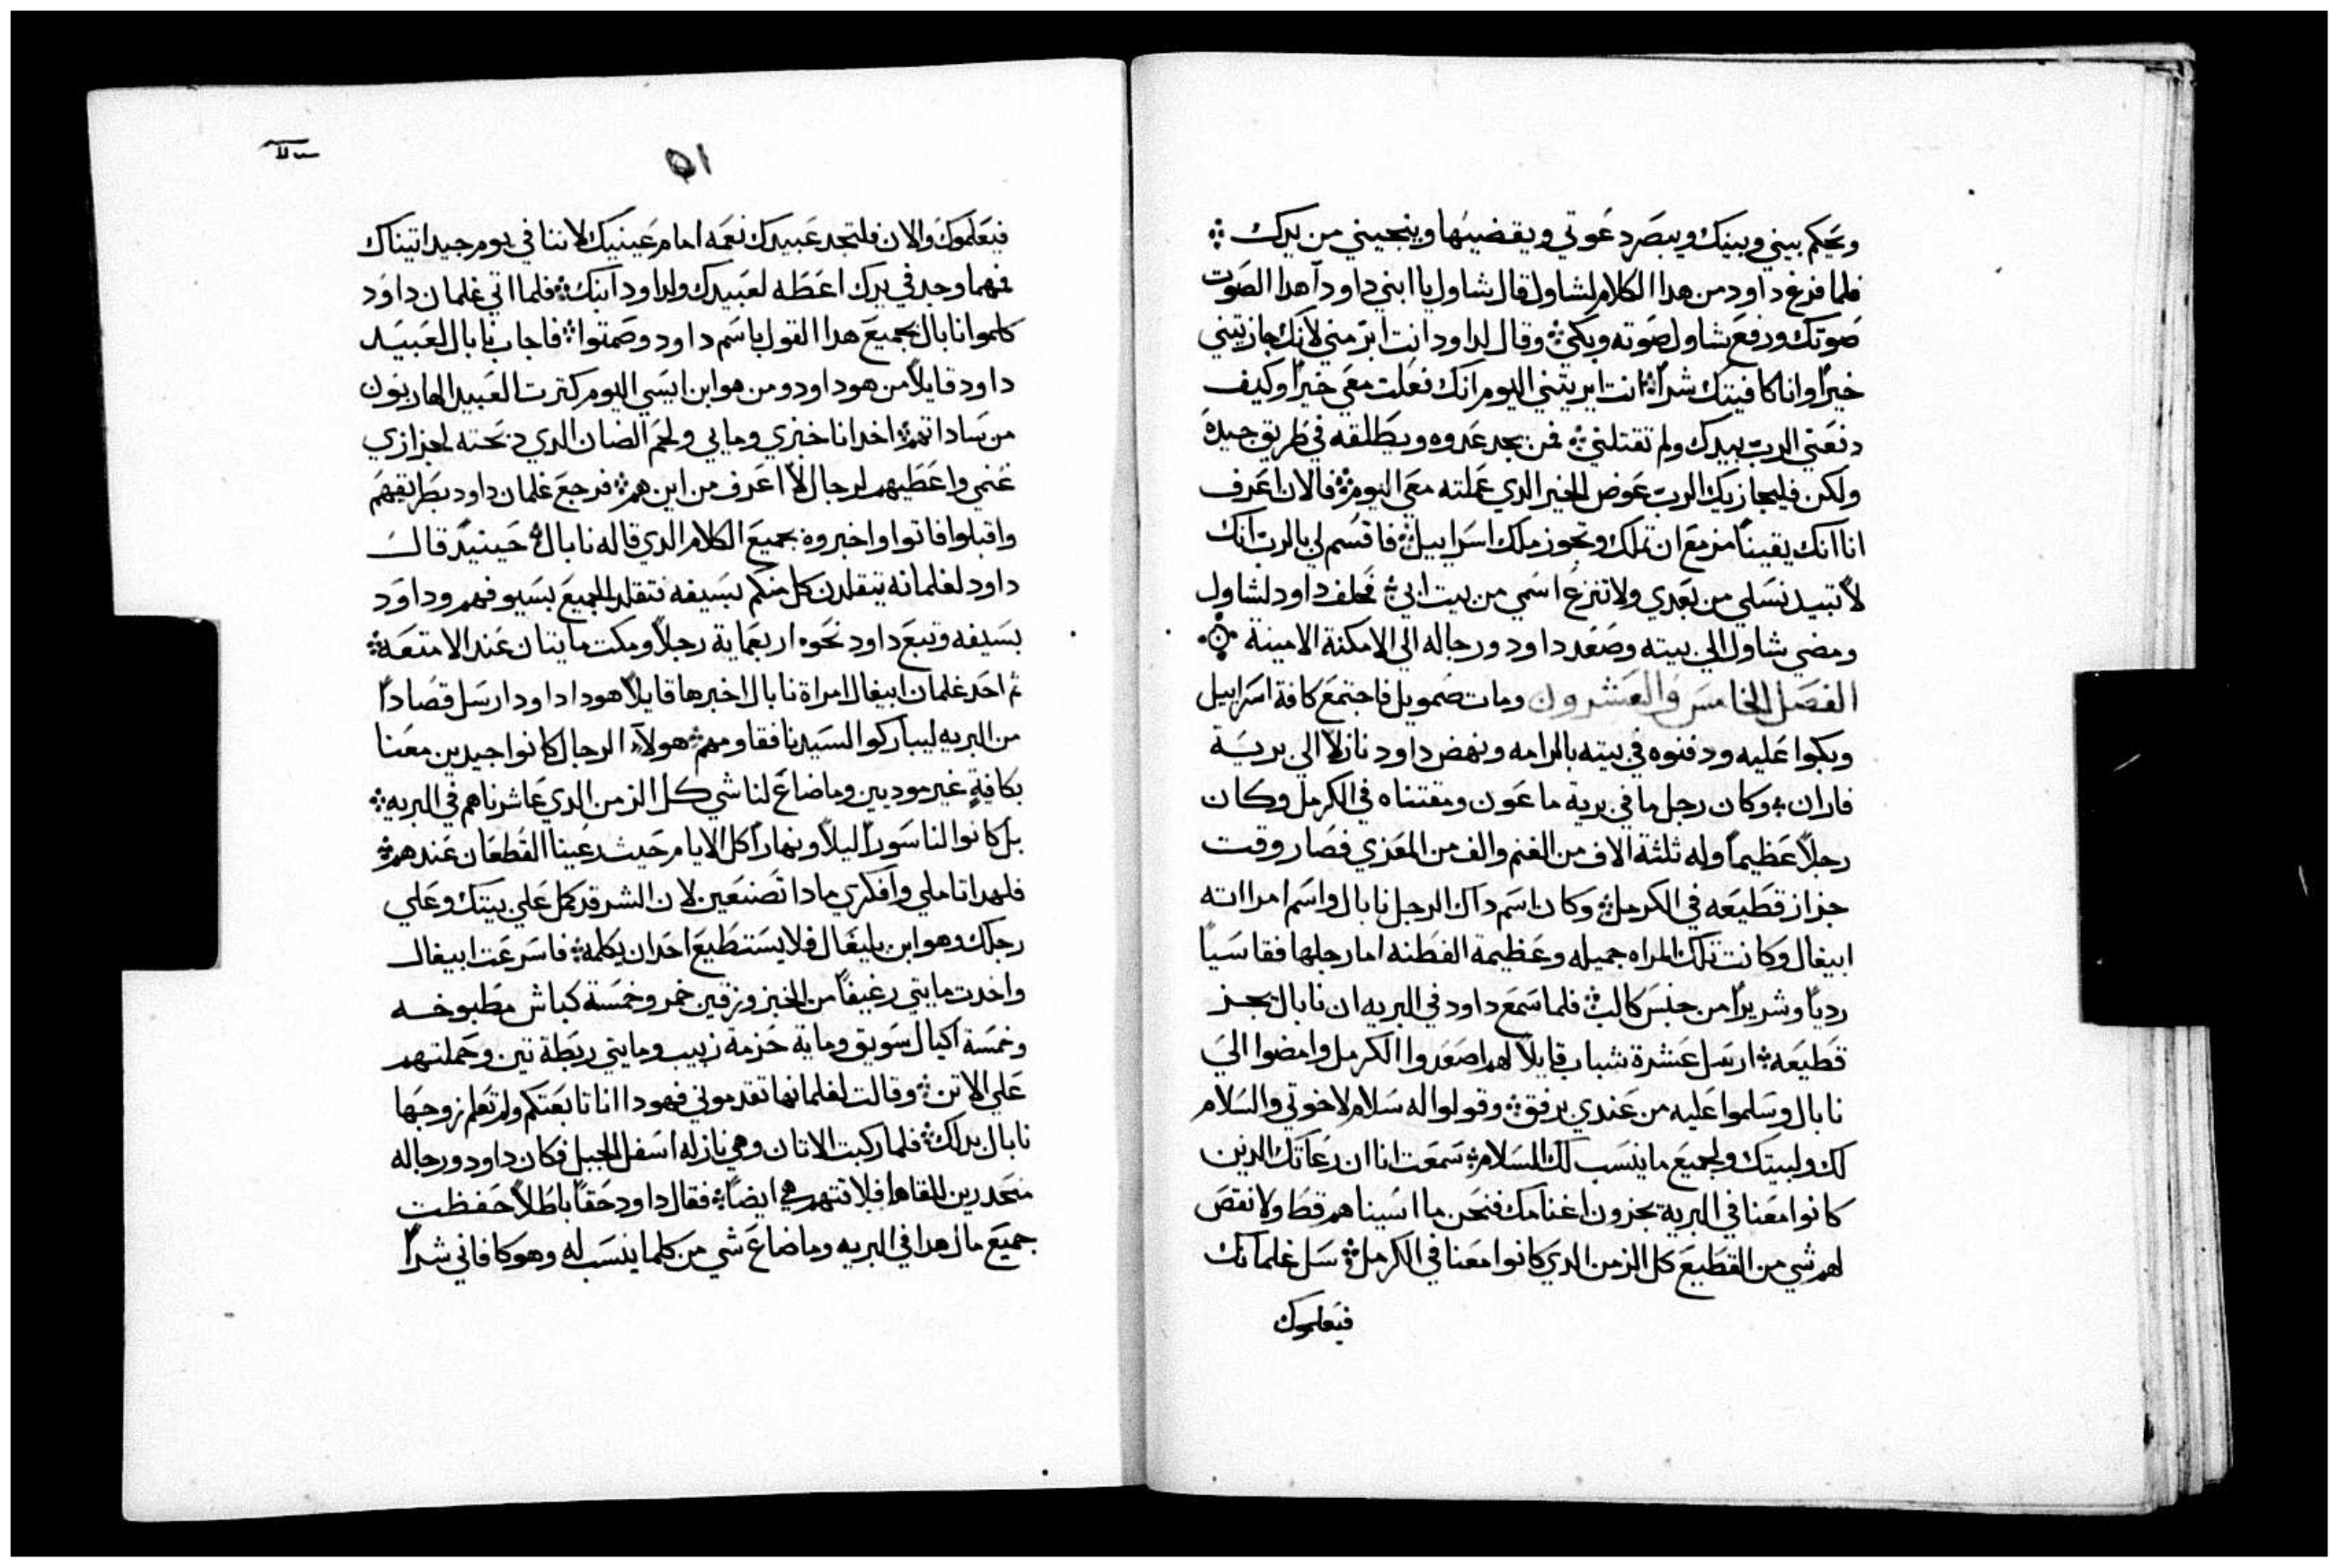 ويحكم بيني وبينك ويبصر دعوتي ويقضيها وينجيني من يدك
فلما فرغ داود من هدا الكلام لشاول قال شاول يا ابني داود آهدا الصوت
صوتك ورفع شاول صوته وبكي وقال لداود انت ابر مني لانك جازيتني
خيراً وانا كافيتك شراً انت ابريتني اليوم انك فعلت معي خيراً وكيف
دفعني الرب بيدك ولم تقتلني فمن يجد عدوه ويطلقه في طريق جيدة
ولكن فليجازيك الرب عوض الخير الدي عملته معي اليوم فالان اعرف
انا انك يقيناً مزمع ان تملك وتحوز ملك اسراييل فاقسم لي بالرب انك
لا تبيد نسلي من بعدي ولا تنزع اسمي من بيت ابي فحلف داود لشاول
ومضي شاول الي بيته وصعد داود ورجاله الي الامكنة الامينة
الفصل الخامس والعشرون ومات ضمويل فاجتمع كافة اسراييل
وبكوا عليه ودفنوه في بيته بالرامه ونهض داود نازلاً الي برية
فاران وكان رجل ما في برية ماعون ومقتناه في الكرمل وكان
رجلاً عظيماً وله ثلثة الاف من الغنم والف من المعزي فصار وقت
جزاز قطيعه في الكرمل وكان اسم داك الرجل نابال واسم امراته
ابيغال وكانت تلك المراه جميله وعظيمة الفطنه اما رجلها فقاسياً
ردياً وشريراً من جنس كالب فلما سمع داود في البريه ان نابال يجز
قطيعه ارسل عشرة شباب قايلاً لهم اصعدوا الكرمل وامضوا الي
نابال وسلموا عليه من عندي برفق وقولوا له سلام لاخوتي والسلام
لك ولبيتك ولجميع ما ينسب لك السلام سمعت انا ان رعاتك الدين
كانوا معنا في البرية يجزون اغنامك فنحن ما اسيناهم قط ولا نقص
لهم شي من القطيع كل الزمن الدي كانوا معنا في الكرمل سل غلمانك
فيعلموك
٥١
فيعلموك والان فلتجد عبيدك نعمه امام عينيك لاننا في يوم جيد اتيناك
فهما وجد في يدك اعطه لعبيدك ولداود ابنك فلما اتي غلمان داود
كلموا نابال بجميع هدا القول باسم داود وصمتوا فاجاب نابال لعبيد
داود قايلاً من هو داود ومن هو ابن ايسي اليوم كترت العبيد الهاربون
من ساداتهم اخد انا خبزي ومايي ولحم الضان الدي دبحته لجزازي
غنمي واعطيهم لرجال لا اعرف من اين هم فرجع غلمان داود بطريقهم
واقبلوا فاتوا واخبروه بجميع الكلام الدي قاله نابال حينيد قال
داود لغلمانه يتقلدن كل منكم بسيفه فتقلد الجميع بسيوفهم وداود
بسيفه وتبع داود نحوه اربعماية رجلاً ومكت مايتان عند الامتعة
ثم احد غلمان ابيغال امراة نابال اخبرها قايلاً هودا داود ارسل قصاداً
من البريه ليباركوا لسيدنا فقاومهم هولاء الرجال كانوا جيدين معنا
بكافية غير موديين وما ضاع لنا شي كل الزمن الدي عاشرناهم في البريه
بل كانوا لنا سوراً ليلاً ونهاراً كل الايام حيث رعينا القطعان عندهم
فلهدا تاملي وافكري مادا تصنعين لان الشر قد كمل علي بيتك وعلي
رجلك وهو ابن بليغال فلا يستطيع احد ان يكلمه فاسرعت ابيغال
واخدت مايتي رغيفاً من الخبز وزقين خمر وخمسة كباش مطبوخه
وخمسة اكيال سويق وماية حزمة زبيب ومايتي ربطة تين وحملتهم
علي الاتن وقالت لغلمانها تقدموني فهودا انا تابعتكم ولم تعلم زوجها
نابال بدلك فلما ركبت الاتان وهي نازله اسفل الجبل فكان داود ورجاله
منحدرين للقاها فلاقتهم هي ايضاً فقال داود حقاً باطلاً حفظت
جميع مال هدا في البريه وما ضاع شي من كلما ينسب له وهو كافاني شراً